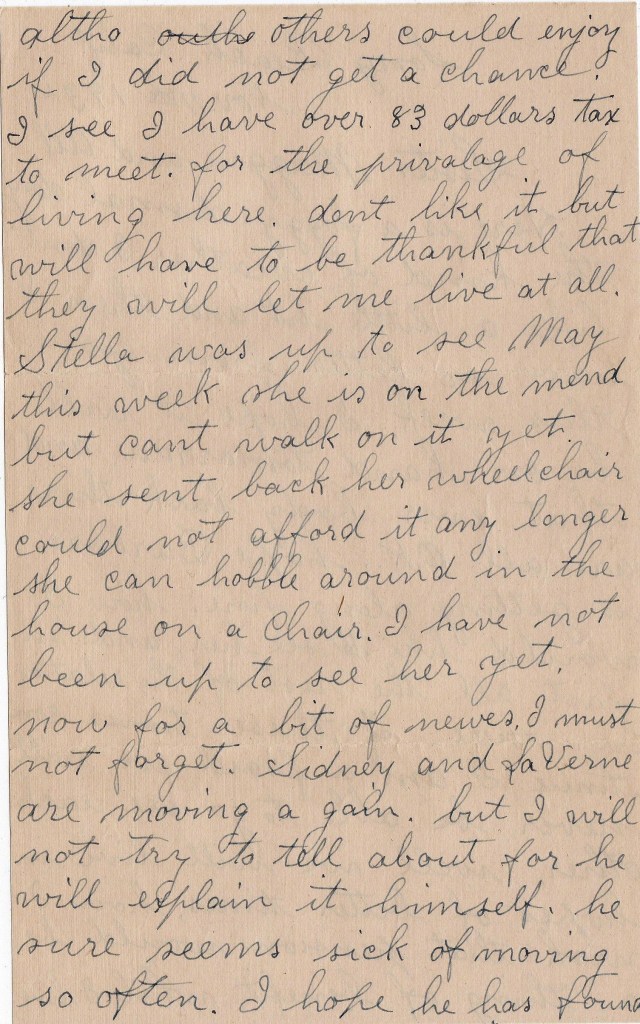 altho ~~outh~~ others could enjoy
if I did not get a chance.
I see I have over 83 dollars tax
to meet. for the privalage of
living here. dont like it but
will have to be thankful that
they will let me live at all.
Stella was up to see May
this week she is on the mend
but cant walk on it yet.
she sent back her wheelchair
could not afford it any longer
she can hobble around in the
house on a Chair. I have not
been up to see her yet.
now for a bit of newes, I must
not forget. Sidney and LaVerne
are moving a gain. but I will
not try to tell about for he
will explain it himself. he
sure seems sick of moving
so often. I hope he has found